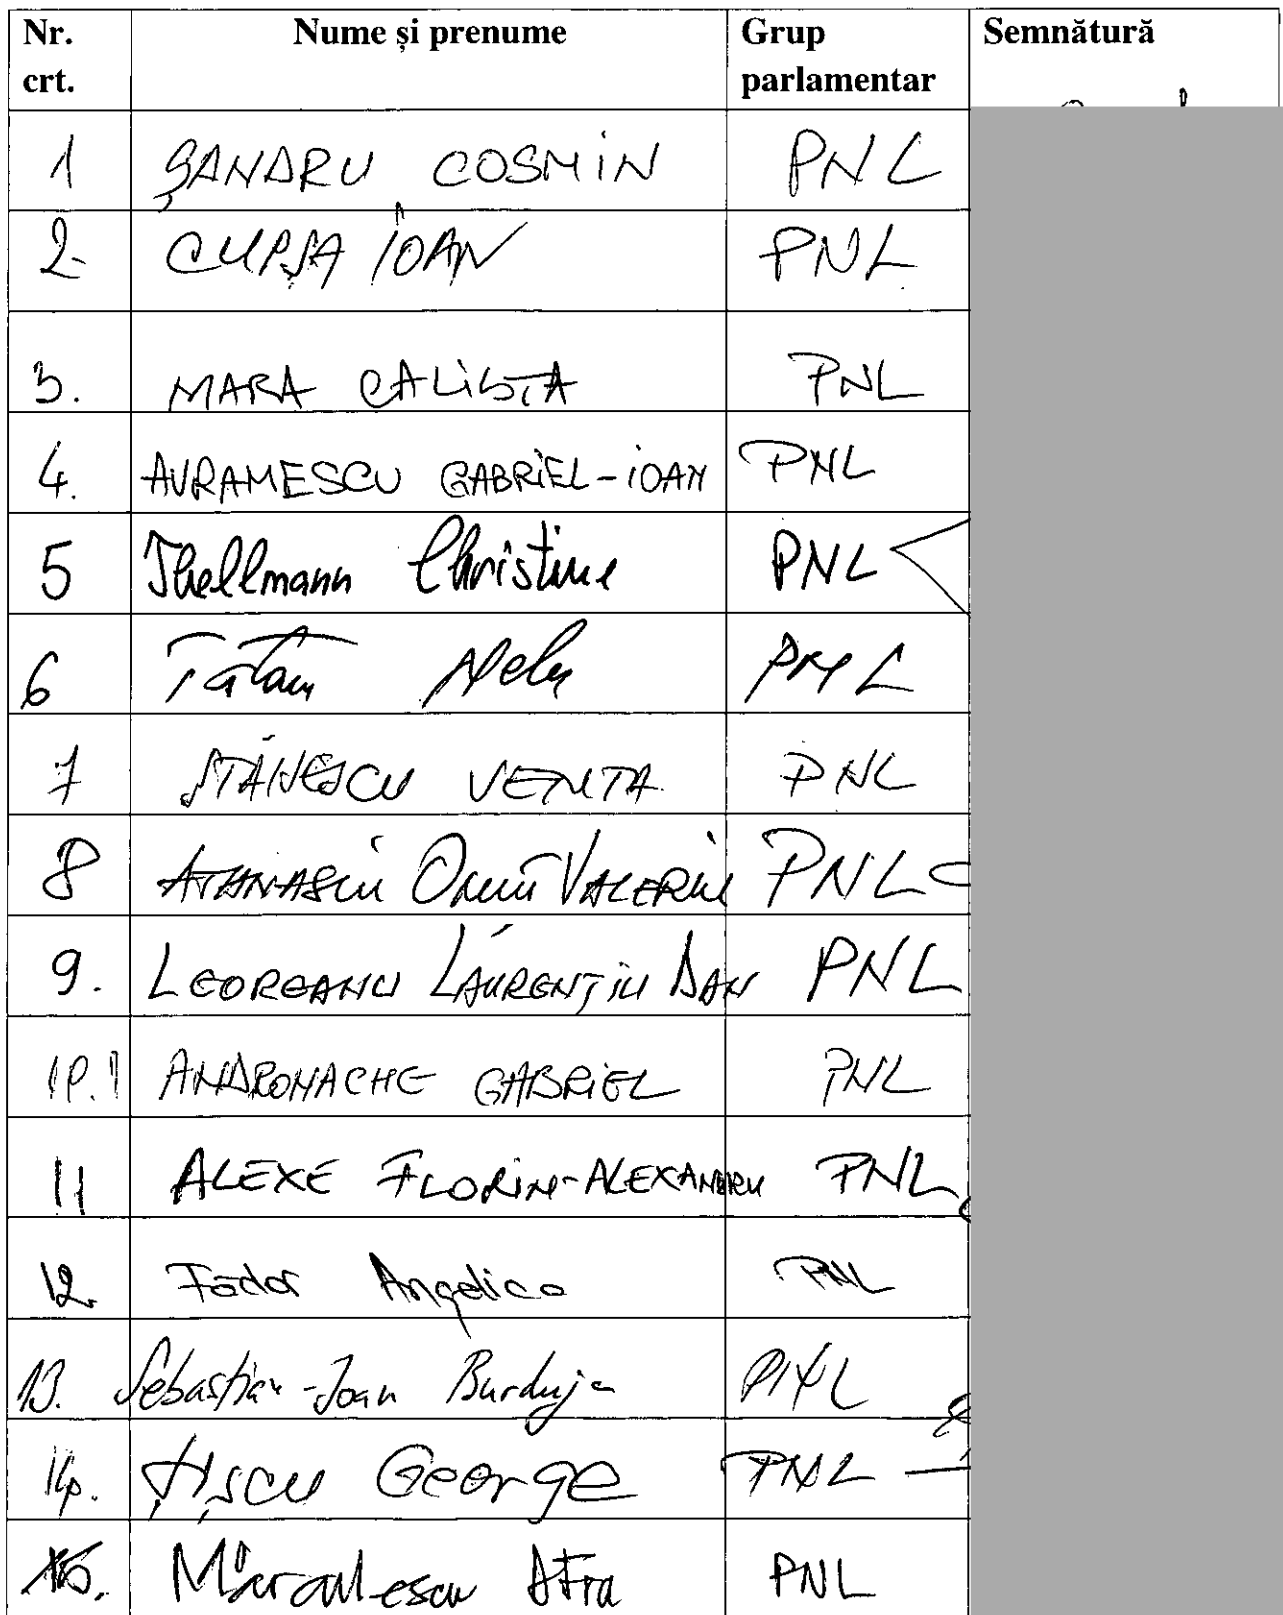 Nr. crt. Nume și prenume Grup parlamentar Semnătură
1 ȘANDRU COSMIN PNL
2. CUPȘA IOAN PNL
3. MARA CALISTA PNL
4. AVRAMESCU GABRIEL-IOAN PNL
5 Thellmann Christine PNL
6 Tătaru Nelu PNL
7 STĂNESCU VETUTA PNL
8 ATANASIU Ovidiu VALERIU PNL
9. LEOREANU LAURENȚIU DAN PNL
10. ANDRONACHE GABRIEL PNL
11 ALEXE FLORIN-ALEXANDRU PNL
12. Fădor Angelica PNL
13. Sebastian-Ioan Burduja PNL
14. Țîscu George PNL
15. PNL